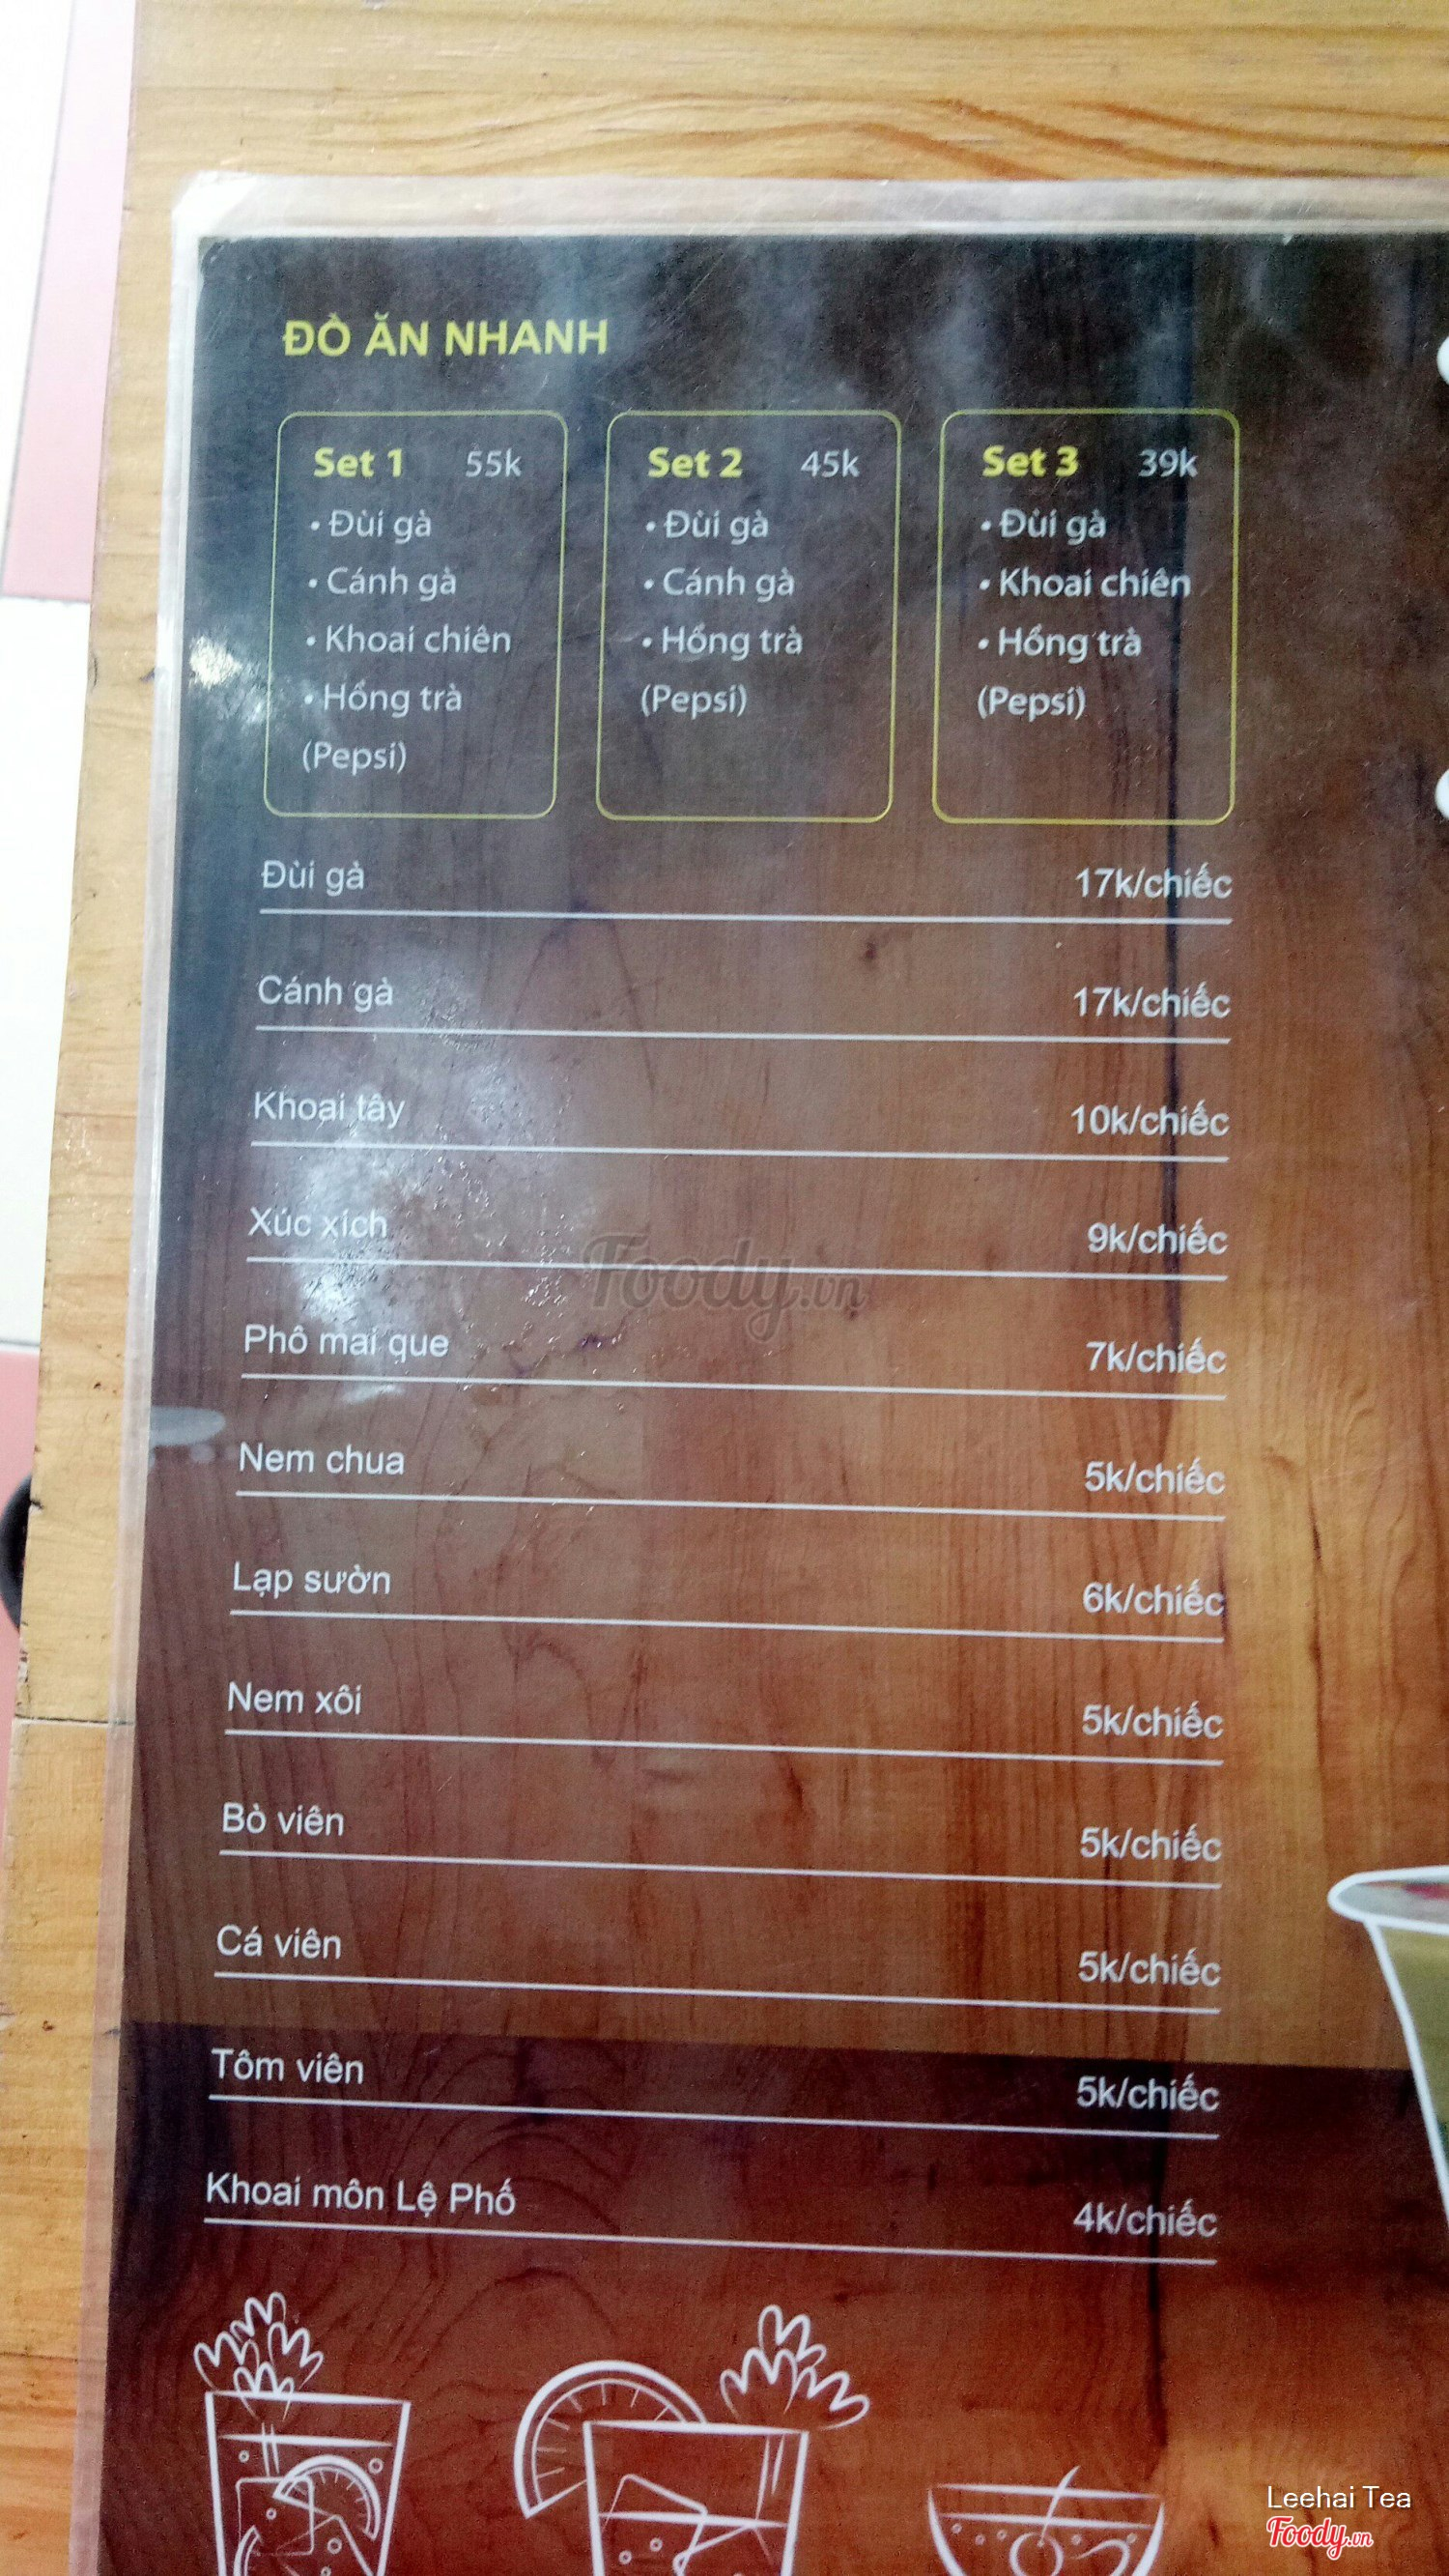 ĐỒ ĂN NHANH
Set 1 55k
• Đùi gà
• Cánh gà
• Khoai chiên
• Hồng trà
(Pepsi)
Set 2 45k
• Đùi gà
• Cánh gà
• Hồng trà
(Pepsi)
Set 3 39k
• Đùi gà
• Khoai chiên
• Hồng trà
(Pepsi)
Đùi gà 17k/chiếc
Cánh gà 17k/chiếc
Khoai tây 10k/chiếc
Xúc xích 9k/chiếc
Phô mai que 7k/chiếc
Nem chua 5k/chiếc
Lạp sườn 6k/chiếc
Nem xôi 5k/chiếc
Bò viên 5k/chiếc
Cá viên 5k/chiếc
Tôm viên 5k/chiếc
Khoai môn Lệ Phố 4k/chiếc
Foody.vn
Leehai Tea
Foody.vn